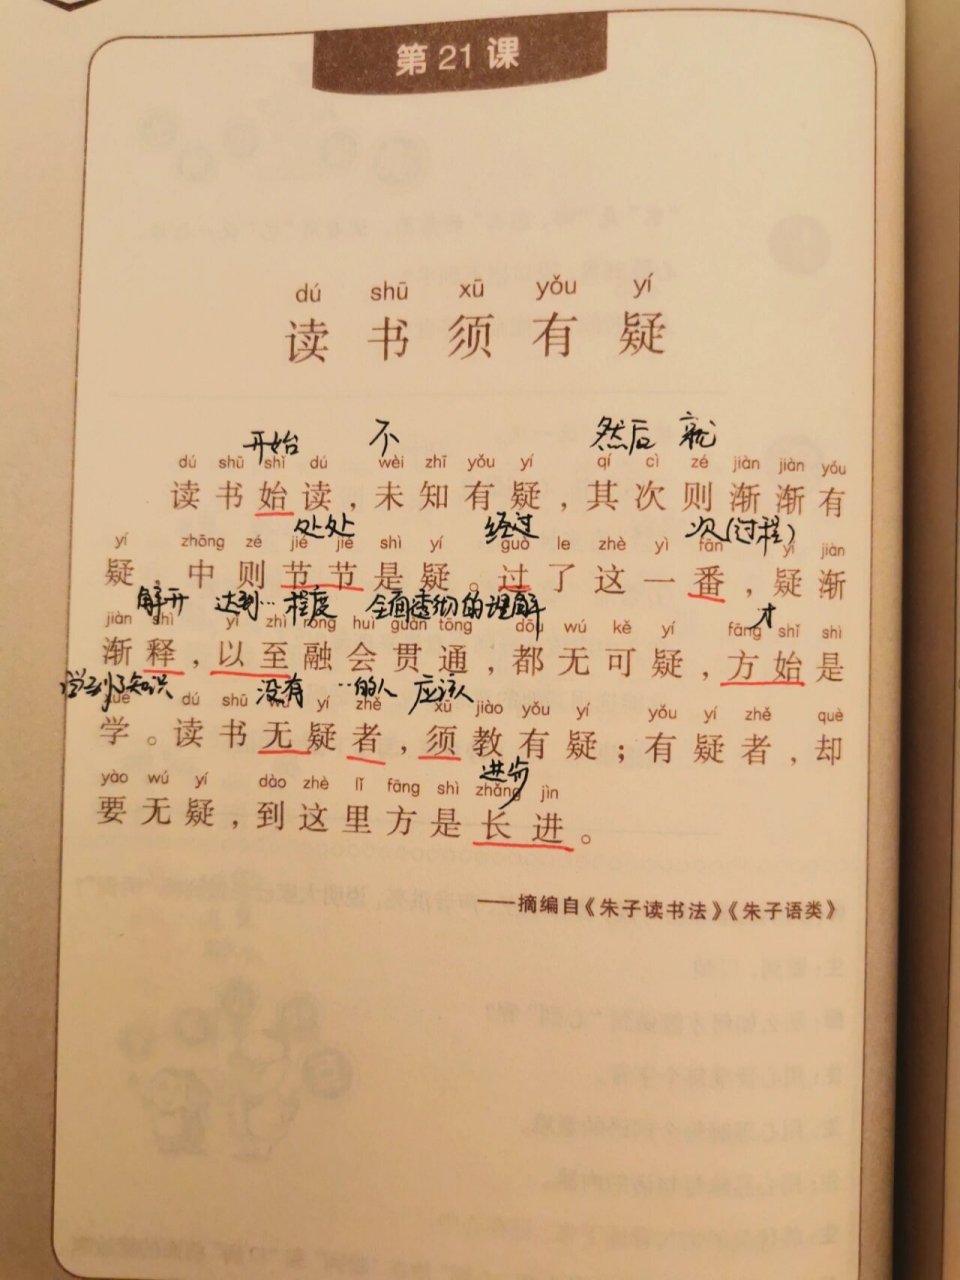 第21课
dú shū xū yǒu yí
读书须有疑
开始 不 然后 就
dú shū shì dú wèi zhī yǒu yí qí cì zé jiàn jiàn yǒu
读书始读，未知有疑，其次则渐渐有
处处 经过 次(过程)
yí zhōng zé jié jié shì yí guò le zhè yì fān yí jiàn
疑，中则节节是疑。过了这一番，疑渐
解开 达到…程度 全面透彻的理解 才
jiàn shì yǐ zhì róng huì guàn tōng dōu wú kě yí fāng shǐ shì
渐释，以至融会贯通，都无可疑，方始是
学到了知识 没有 …的人 应该
xué dú shū wú yí zhě xū jiào yǒu yí yǒu yí zhě què
学。读书无疑者，须教有疑；有疑者，却
进步
yào wú yí dào zhè lǐ fāng shì zhǎng jìn
要无疑，到这里方是长进。
——摘编自《朱子读书法》《朱子语类》